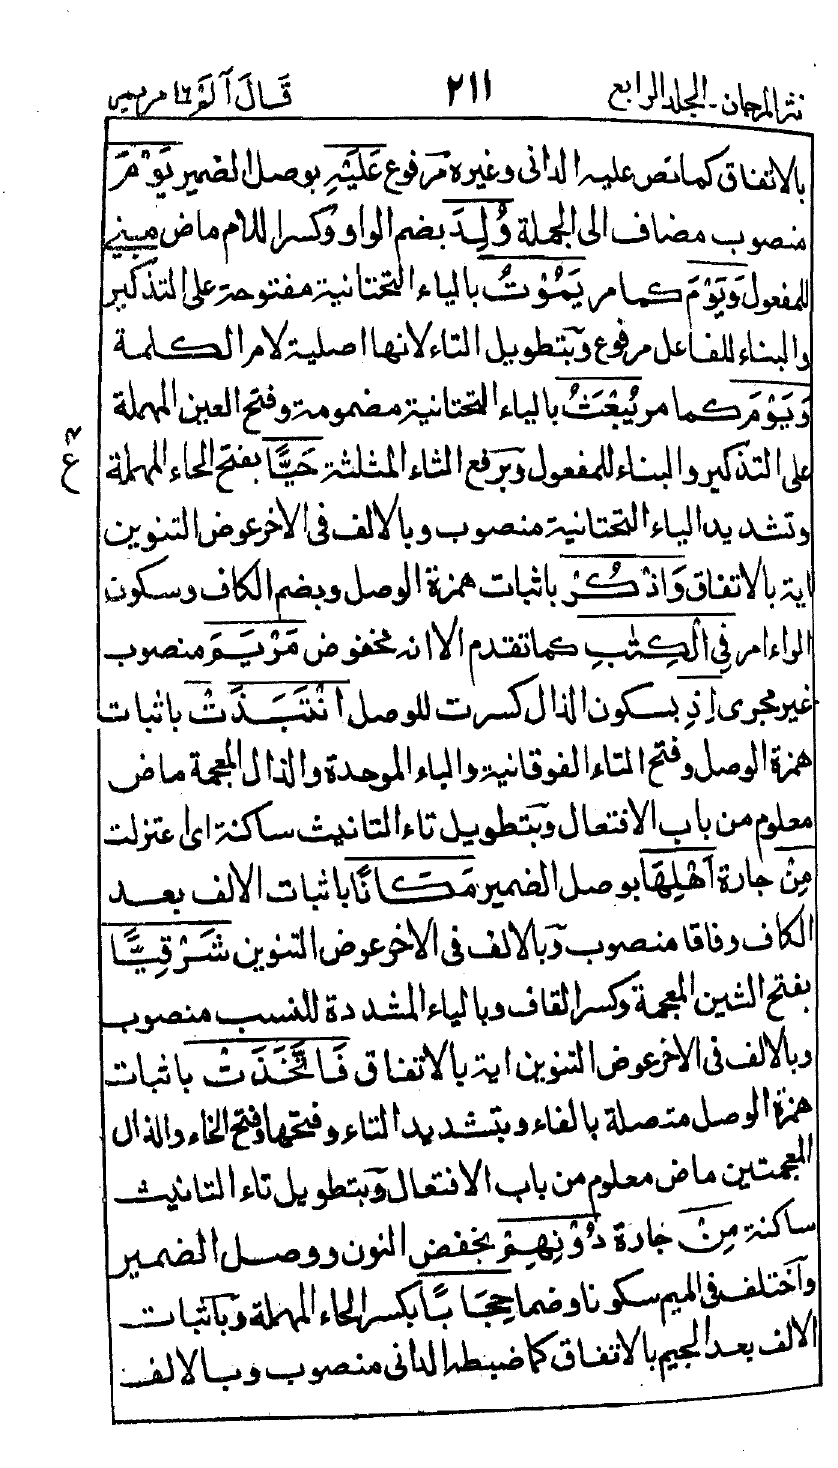 نثر المرجان - الجلد الرابع ٢١١ قَالَ آلَمْ ١٦ مريم
بالاتفاق كما نص عليه الدانى وغيره مرفوع عَلَيْهِ بوصل الضمير يَوْمَ
منصوب مضاف الى الجملة وُلِدَ بضم الواو وكسر اللام ماض مبنى
للمفعول وَيَوْمَ كما مر يَمُوْتُ بالياء التحتانية مفتوحة على التذكير
والبناء للفاعل مرفوع وبتطويل التاء لانها اصلية لام الكلمة
وَيَوْمَ كما مر يُبْعَثُ بالياء التحتانية مضمومة وفتح العين المهملة
على التذكير والبناء للمفعول وبرفع الثاء المثلثة حَيًّا بفتح الحاء المهملة
ع
وتشديد الياء التحتانية منصوب وبالالف فى الاخر عوض التنوين
اية بالاتفاق وَاذْكُرْ باثبات همزة الوصل وبضم الكاف وسكون
الراء امر فِى الْكِتٰبِ كما تقدم الا انه مخفوض مَرْيَمَ منصوب
غير مجرى اِذِ بسكون الذال كسرت للوصل انْتَبَذَتْ باثبات
همزة الوصل وفتح التاء الفوقانية والباء الموحدة والذال المعجمة ماض
معلوم من باب الافتعال وبتطويل تاء التانيث ساكنة اى اعتزلت
مِنْ جارة اَهْلِهَا بوصل الضمير مَكَانًا باثبات الالف بعد
الكاف وفاقا منصوب وبالالف فى الاخر عوض التنوين شَرْقِيًّا
بفتح الشين المعجمة وكسر القاف وبالياء المشددة للنسب منصوب
وبالالف فى الاخر عوض التنوين اية بالاتفاق فَاتَّخَذَتْ باثبات
همزة الوصل متصلة بالفاء وبتشديد التاء وفتحها وفتح الخاء والذال
المعجمتين ماض معلوم من باب الافتعال وبتطويل تاء التانيث
ساكنة مِنْ جارة دُوْنِهِمْ بخفض النون ووصل الضمير
واختلف فى الميم سكونا وضما حِجَابًا بكسر الحاء المهملة وباثبات
الالف بعد الجيم بالاتفاق كما ضبطه الدانى منصوب وبالالف